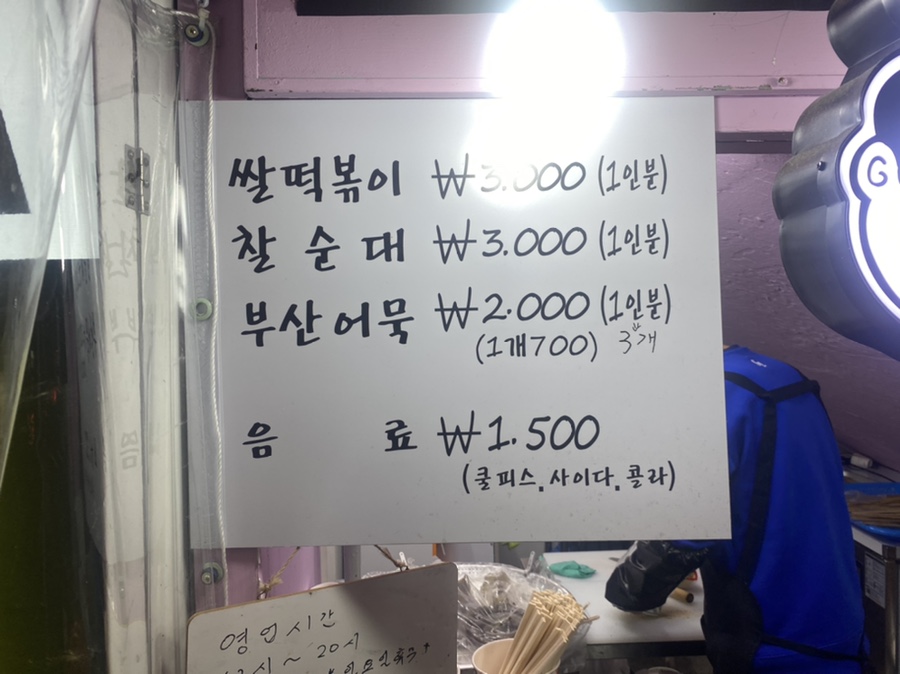 쌀떡볶이 ₩3.000 (1인분)
찰순대 ₩3.000 (1인분)
부산어묵 ₩2.000 (1인분)
(1개700) 3개
음료 ₩1.500
(쿨피스.사이다.콜라)
영업시간
~ 20시